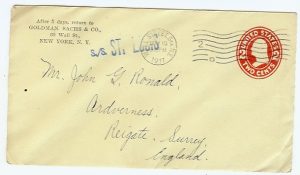 After 5 days, return to
GOLDMAN, SACHS & CO.
60 Wall St.,
NEW YORK, N. Y.
S/S ST. LOUIS
1917
2
UNITED STATES
TWO CENTS
Mr. John G. Ronald,
Ardverness.
Reigate, Surrey.
England.